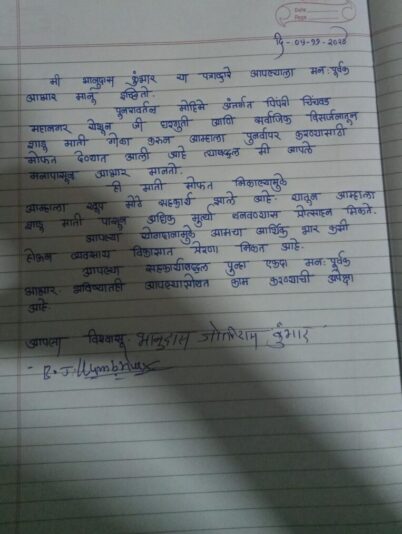 Date
Page
दि - ०५-११-२०२०
मी भानुदास कुंभार या पत्राद्वारे आपल्याला मनःपूर्वक
आभार मानू इच्छितो.
पुनरावर्तन मोहिमे अंतर्गत पिंपरी चिंचवड
महानगर येथून जी घरगुती आणि सार्वजनिक विसर्जनातून
शाडू माती गोळा करून आम्हाला पुनर्वापर करण्यासाठी
मोफत देण्यात आली आहे त्याबद्दल मी आपले
मनापासून आभार मानतो.
ही माती मोफत मिळाल्यामुळे
आम्हाला खूप मोठे सहकार्य झाले आहे. यातून आम्हाला
शाडू माती पासून अधिक मुर्त्या बनवण्यास प्रोत्साहन मिळते.
आपल्या योगदानामुळे आमचा आर्थिक भार कमी
होऊन व्यवसाय विकासास प्रेरणा मिळत आहे.
आपल्या सहकार्याबद्दल पुन्हा एकदा मनःपूर्वक
आभार. भविष्यातही आपल्यासोबत काम करण्याची अपेक्षा
आहे.
आपला विश्वासू भानुदास जोतिराम कुंभार
B. J. Kumbhar